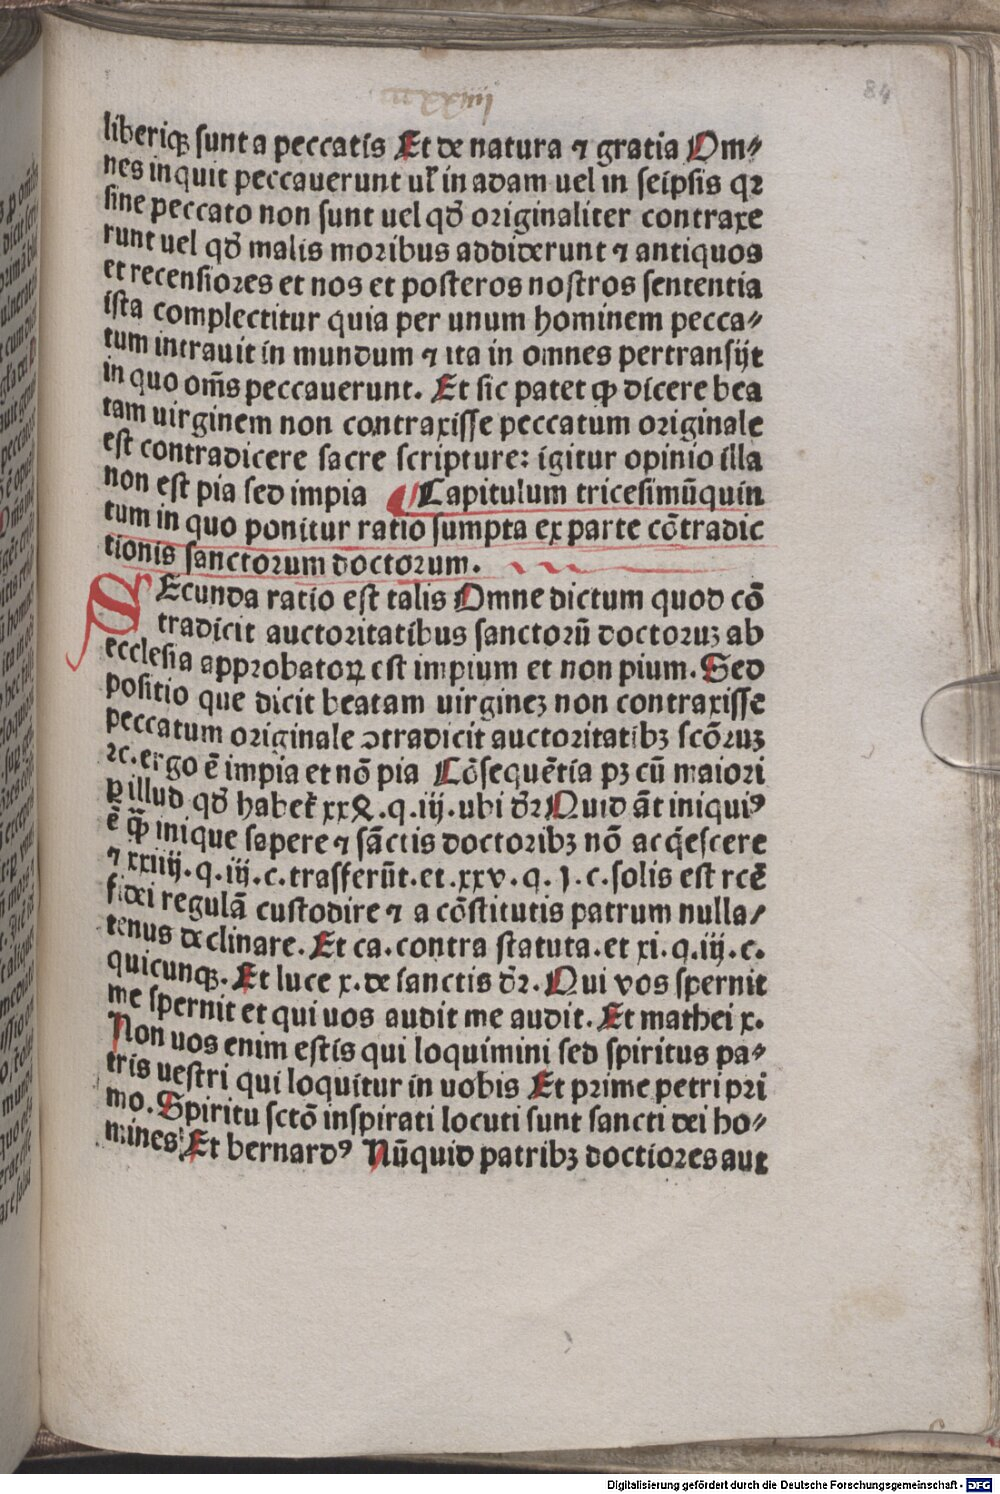 84
liberiqꝫ sunt a peccatis Et de natura ⁊ gratia Om⸗
nes inquit peccauerunt ul̓ in adam uel in seipsis qꝛ
sine peccato non sunt uel qđ originaliter contraxe
runt uel qđ malis moribus addiderunt ⁊ antiquos
et recensiores et nos et posteros nostros sententia
ista complectitur quia per unum hominem pecca⸗
tum intrauit in mundum ⁊ ita in omnes pertransijt
in quo om̄s peccauerunt. Et sic patet ꝙ dicere bea
tam uirginem non contraxisse peccatum originale
est contradicere sacre scripture: igitur opinio illa
non est pia sed impia ¶ Capitulum tricesimūquin
tum in quo ponitur ratio sumpta ex parte cōtradic
tionis sanctorum doctorum.
SEcunda ratio est talis Omne dictum quod cō
tradicit auctoritatibus sanctorū doctoruꝫ ab
ecclesia approbatoꝝ est impium et non pium. Sed
positio que dicit beatam uirgineꝫ non contraxisse
peccatum originale ↄtradicit auctoritatibꝫ scōruꝫ
ꝛc. ergo ē impia et nō pia Cōsequētia pꝫ cū maiori
ꝑ illud qđ habet̉ xxꝝ.q.iij.ubi dr̄ Quid āt iniquiꝰ
ē ꝙ̄ inique sapere ⁊ sāctis doctoribꝫ nō acq̄escere
⁊ xxiiij.q.iij.c.trasferūt.et.xxv.q.j.c.solis est rcē
fidei regulā custodire ⁊ a cōstitutis patrum nulla/
tenus declinare. Et ca.contra statuta.et xi.q.iij.c.
quicunqꝫ. Et luce x.de sanctis dr̄. Qui vos spernit
me spernit et qui uos audit me audit. Et mathei x.
Non uos enim estis qui loquimini sed spiritus pa⸗
tris uestri qui loquitur in uobis Et prime petri pri
mo. Spiritu sctō inspirati locuti sunt sancti dei ho⸗
mines Et bernardꝰ Nūquid patribꝫ doctiores aut
Digitalisierung gefördert durch die Deutsche Forschungsgemeinschaft - DFG